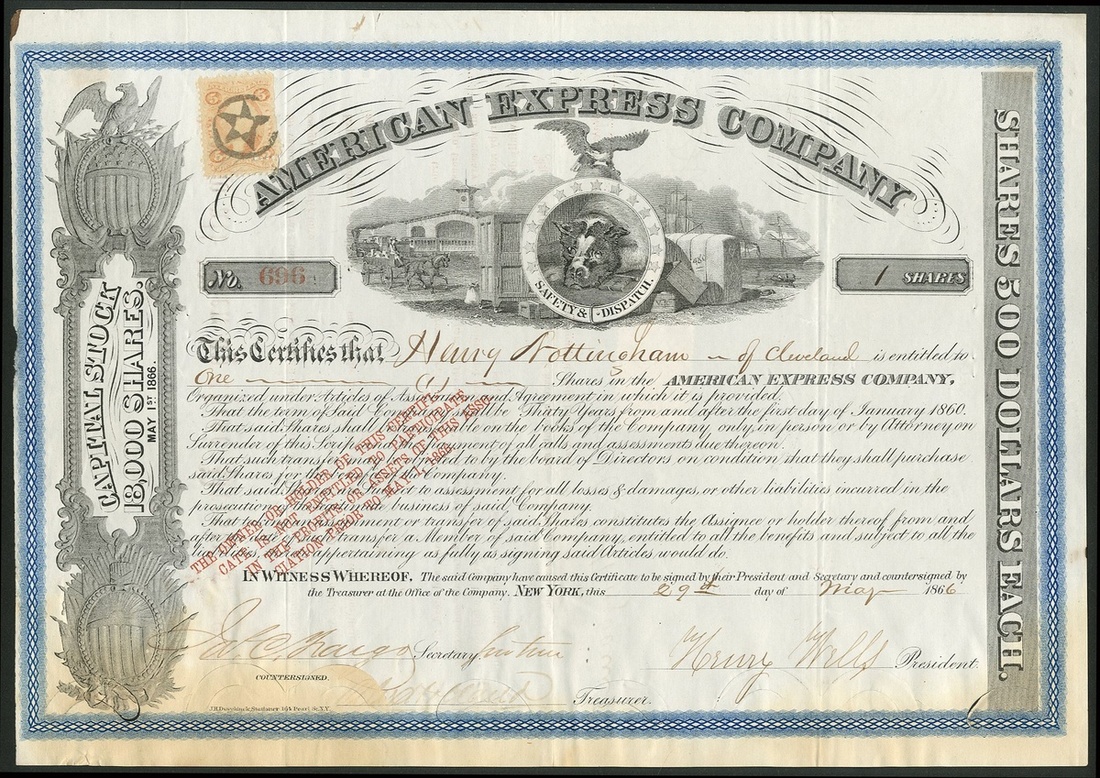 AMERICAN EXPRESS COMPANY
SAFETY & DISPATCH.
No. 696
1 SHARES
CAPITAL STOCK
18,000 SHARES.
MAY 1ST 1866.
SHARES 500 DOLLARS EACH.
This Certifies that Henry Nottingham of Cleveland is entitled to
One (1) Shares in the AMERICAN EXPRESS COMPANY,
Organized under Articles of and Agreement in which it is provided
That the term of Said shall be Thirty Years from and after the first day of January 1860.
That said Shares shall on the books of the Company only, in person or by Attorney on
Surrender of this Scrip and payment of all calls and assessments due thereon.
That such transfer to by the board of Directors on condition that they shall purchase
said Shares for the Company.
That said to assessment for all losses & damages, or other liabilities incurred in the
prosecution business of said Company.
That assignment or transfer of said Shares constitutes the Assignee or holder thereof, from and
after transfer a Member of said Company, entitled to all the benefits and subject to all the
appertaining as fully as signing said Articles would do.
THE OWNER OR HOLDER OF THIS CERTIFI-
CATE IS NOT ENTITLED TO PARTICIPATE
IN THE PROFITS OR ASSETS OF THIS ASSO-
CIATION PRIOR TO MAY 1, 1866.
IN WITNESS WHEREOF. The said Company have caused this Certificate to be signed by their President and Secretary and countersigned by
the Treasurer at the Office of the Company. NEW YORK, this 29th day of May 1866
J. C. Fargo Secretary
Henry Wells President.
COUNTERSIGNED.
Treasurer.
164 Pearl St. N.Y.